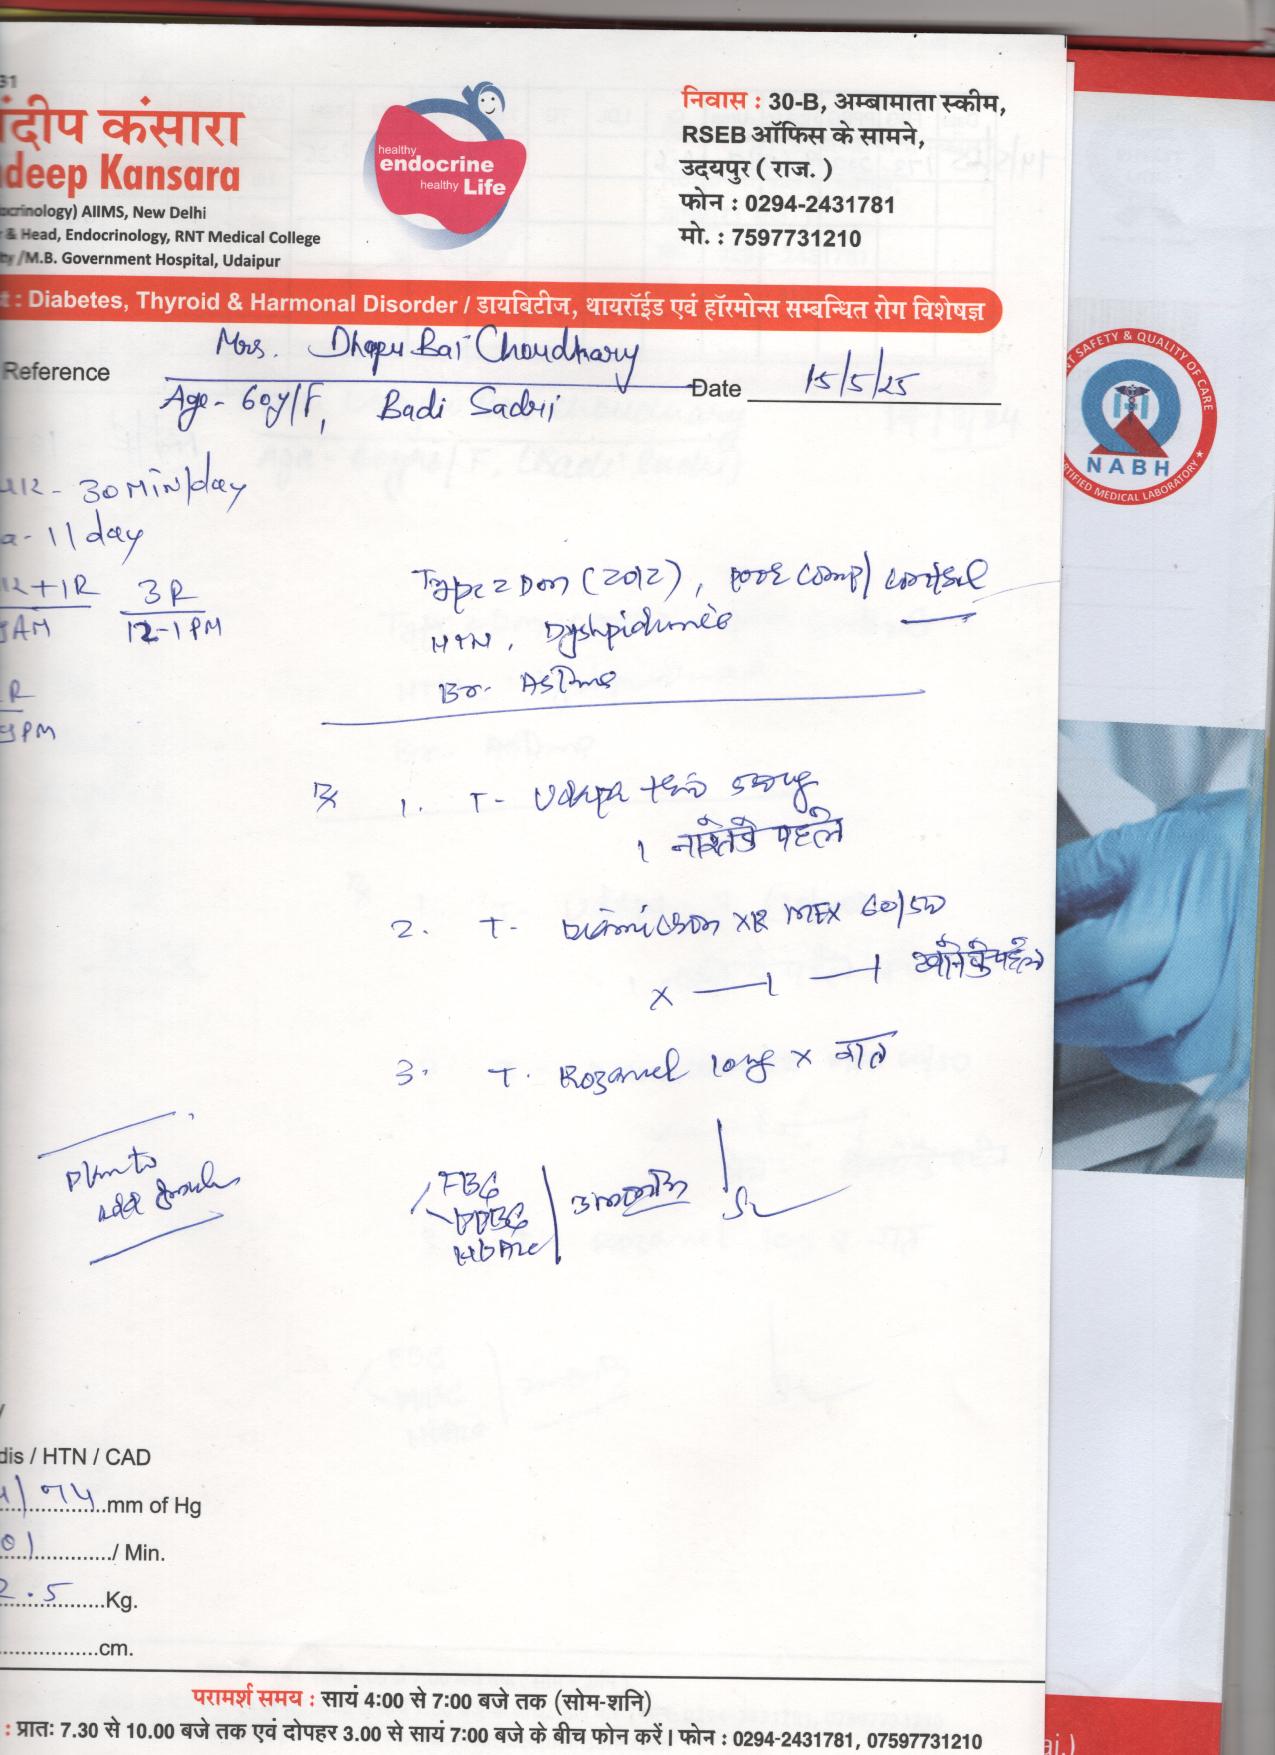 31
ंदीप कंसारा
deep Kansara
ocrinology) AIIMS, New Delhi
& Head, Endocrinology, RNT Medical College
ty /M.B. Government Hospital, Udaipur
healthy
endocrine
healthy Life
निवास : 30-B, अम्बामाता स्कीम,
RSEB ऑफिस के सामने,
उदयपुर ( राज. )
फोन : 0294-2431781
मो. : 7597731210
t : Diabetes, Thyroid & Harmonal Disorder / डायबिटीज, थायरॉईड एवं हॉरमोन्स सम्बन्धित रोग विशेषज्ञ
Mrs. Dhapu Bai Choudhary
Reference
Date 15/5/25
Age- 60y/F, Badi Sadri
- 30 Min/day
a- 1/day
+ 1R 3R
9AM 12-1PM
R
9PM
Type 2 DM (2012), poor comp/control
HTN, Dyslipidemia
Br. Asthma
Rx 1. T- Udapa trio
1 नाश्ते के पहले
2. T- Diamicron XR MEX 60/500
x — 1 — 1 खाने के पहले
3. T. Rozavel 10mg x रात
Plan to
add
FBG
PPBG
HbA1c
dis / HTN / CAD
/ 74 mm of Hg
01 / Min.
2.5 Kg.
cm.
परामर्श समय : सायं 4:00 से 7:00 बजे तक (सोम-शनि)
: प्रातः 7.30 से 10.00 बजे तक एवं दोपहर 3.00 से सायं 7:00 बजे के बीच फोन करें। फोन : 0294-2431781, 07597731210
NT SAFETY & QUALITY OF CARE
NABH
RTIFIED MEDICAL LABORATORY
aj.)